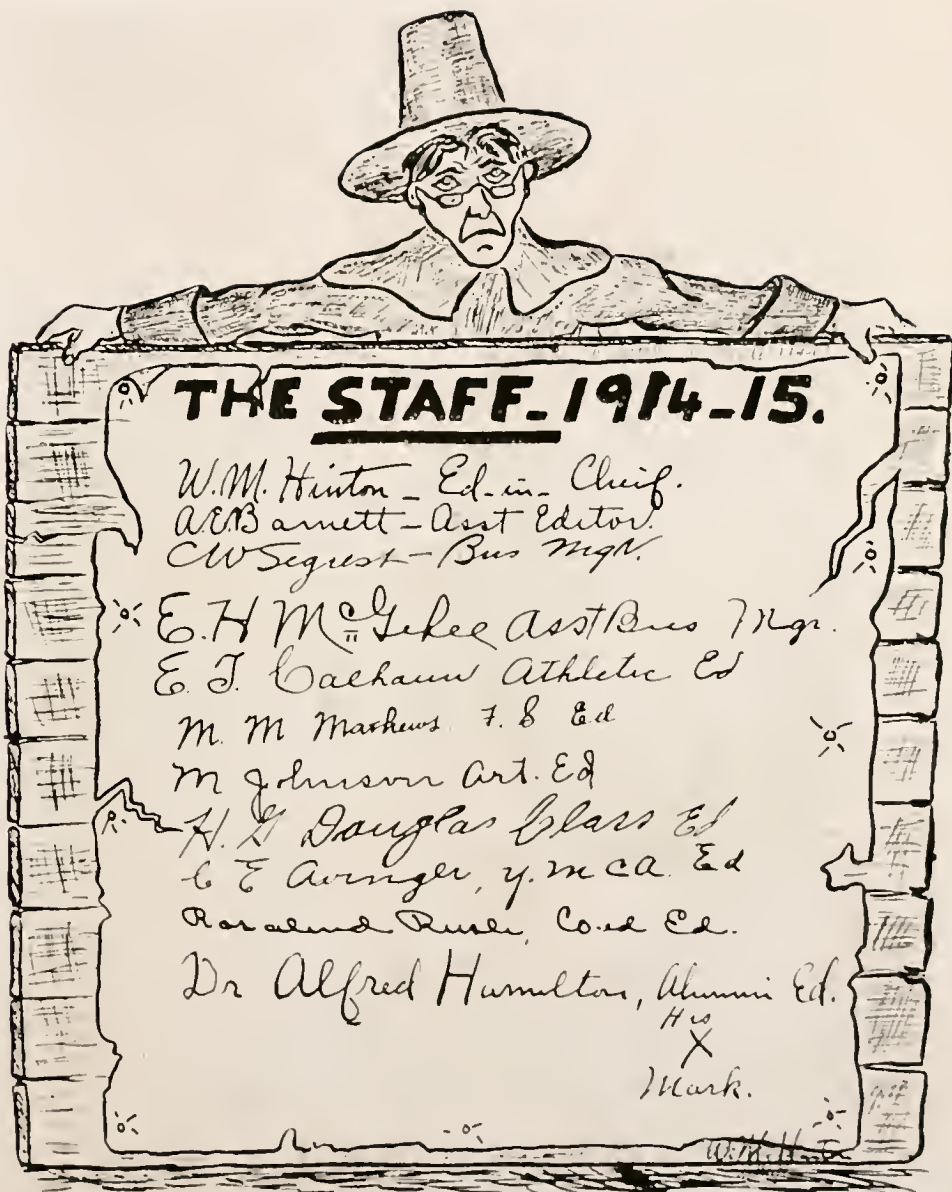 THE STAFF_1914_15.
W.M. Hinton _ Ed_in_ Cheif.
A.E. Barnett _ Asst Editor.
CW Segrest _ Bus Mgr.
E. H McGehee Asst Bus Mgr.
E. T. Calhoun Athletic Ed
M. M Mathews F. S Ed
M Johnson Art. Ed
H. G Douglas Class Ed
C E Avinger, Y. M C A. Ed
Rosalind Rush, Co.ed Ed.
Dr Alfred Hamilton, Alumni Ed.
His
X
Mark.
W. M. Hinton